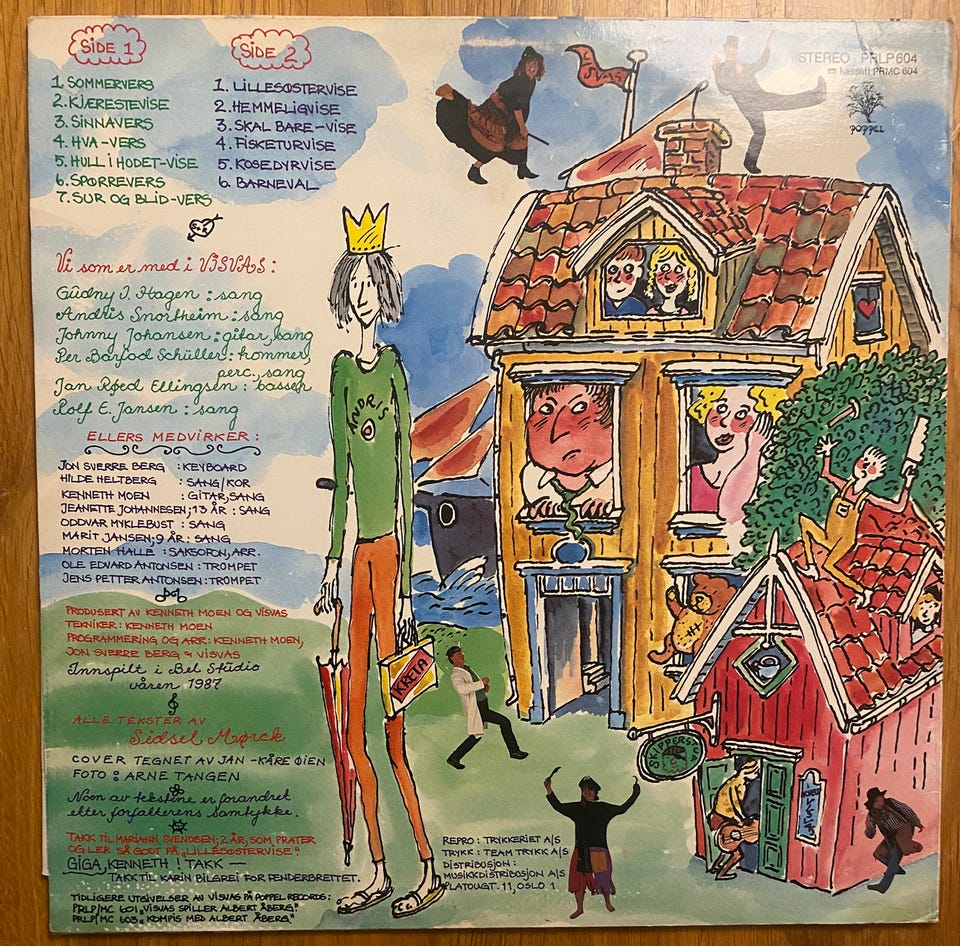 SIDE 1
1. SOMMERVERS
2. KJÆRESTEVISE
3. SINNAVERS
4. HVA-VERS
5. HULL I HODET-VISE
6. SPØRREVERS
7. SUR OG BLID-VERS
SIDE 2
1. LILLESØSTERVISE
2. HEMMELIGVISE
3. SKAL BARE-VISE
4. FISKETURVISE
5. KOSEDYRVISE
6. BARNEVAL
VISVAS
STEREO PRLP 604
kassett PRMC 604
POPPEL
Vi som er med i VISVAS:
Gudny I. Hagen : sang
Andris Snortheim : sang
Johnny Johansen : gitar, sang
Per Barfod Schüller : trommer,
perc., sang
Jan Roed Ellingsen : basser
Rolf E. Jansen : sang
ELLERS MEDVIRKER :
JON SVERRE BERG : KEYBOARD
HILDE HELTBERG : SANG/KOR
KENNETH MOEN : GITAR, SANG
JEANETTE JOHANNESEN; 13 ÅR : SANG
ODDVAR MYKLEBUST : SANG
MARIT JANSEN; 9 ÅR : SANG
MORTEN HALLE : SAKSOFON, ARR.
OLE EDVARD ANTONSEN : TROMPET
JENS PETTER ANTONSEN : TROMPET
PRODUSERT AV KENNETH MOEN OG VISVAS
TEKNIKER : KENNETH MOEN
PROGRAMMERING OG ARR : KENNETH MOEN,
JON SVERRE BERG & VISVAS
Innspilt i Bel Studio
våren 1987
ALLE TEKSTER AV
Sidsel Mørck
COVER TEGNET AV JAN-KÅRE ØIEN
FOTO : ARNE TANGEN
Noen av tekstene er forandret
etter forfatterens samtykke.
TAKK TIL MARIANN SVENDSEN; 2 ÅR, SOM PRATER
OG LER SÅ GODT PÅ „LILLESØSTERVISE"
GIGA, KENNETH ! TAKK —
TAKK TIL KARIN BILGREI FOR PENDERBRETTET.
TIDLIGERE UTGIVELSER AV VISVAS PÅ POPPEL RECORDS :
PRLP/MC 601 „VISVAS SPILLER ALBERT ÅBERG"
PRLP/MC 603 „KOMPIS MED ALBERT ÅBERG"
ANDRIS
KRETA
SKIPPERSTUA
REPRO : TRYKKERIET A/S
TRYKK : TEAM TRYKK A/S
DISTRIBUSJON :
MUSIKKDISTRIBUSJON A/S
PLATOUGT. 11, OSLO 1